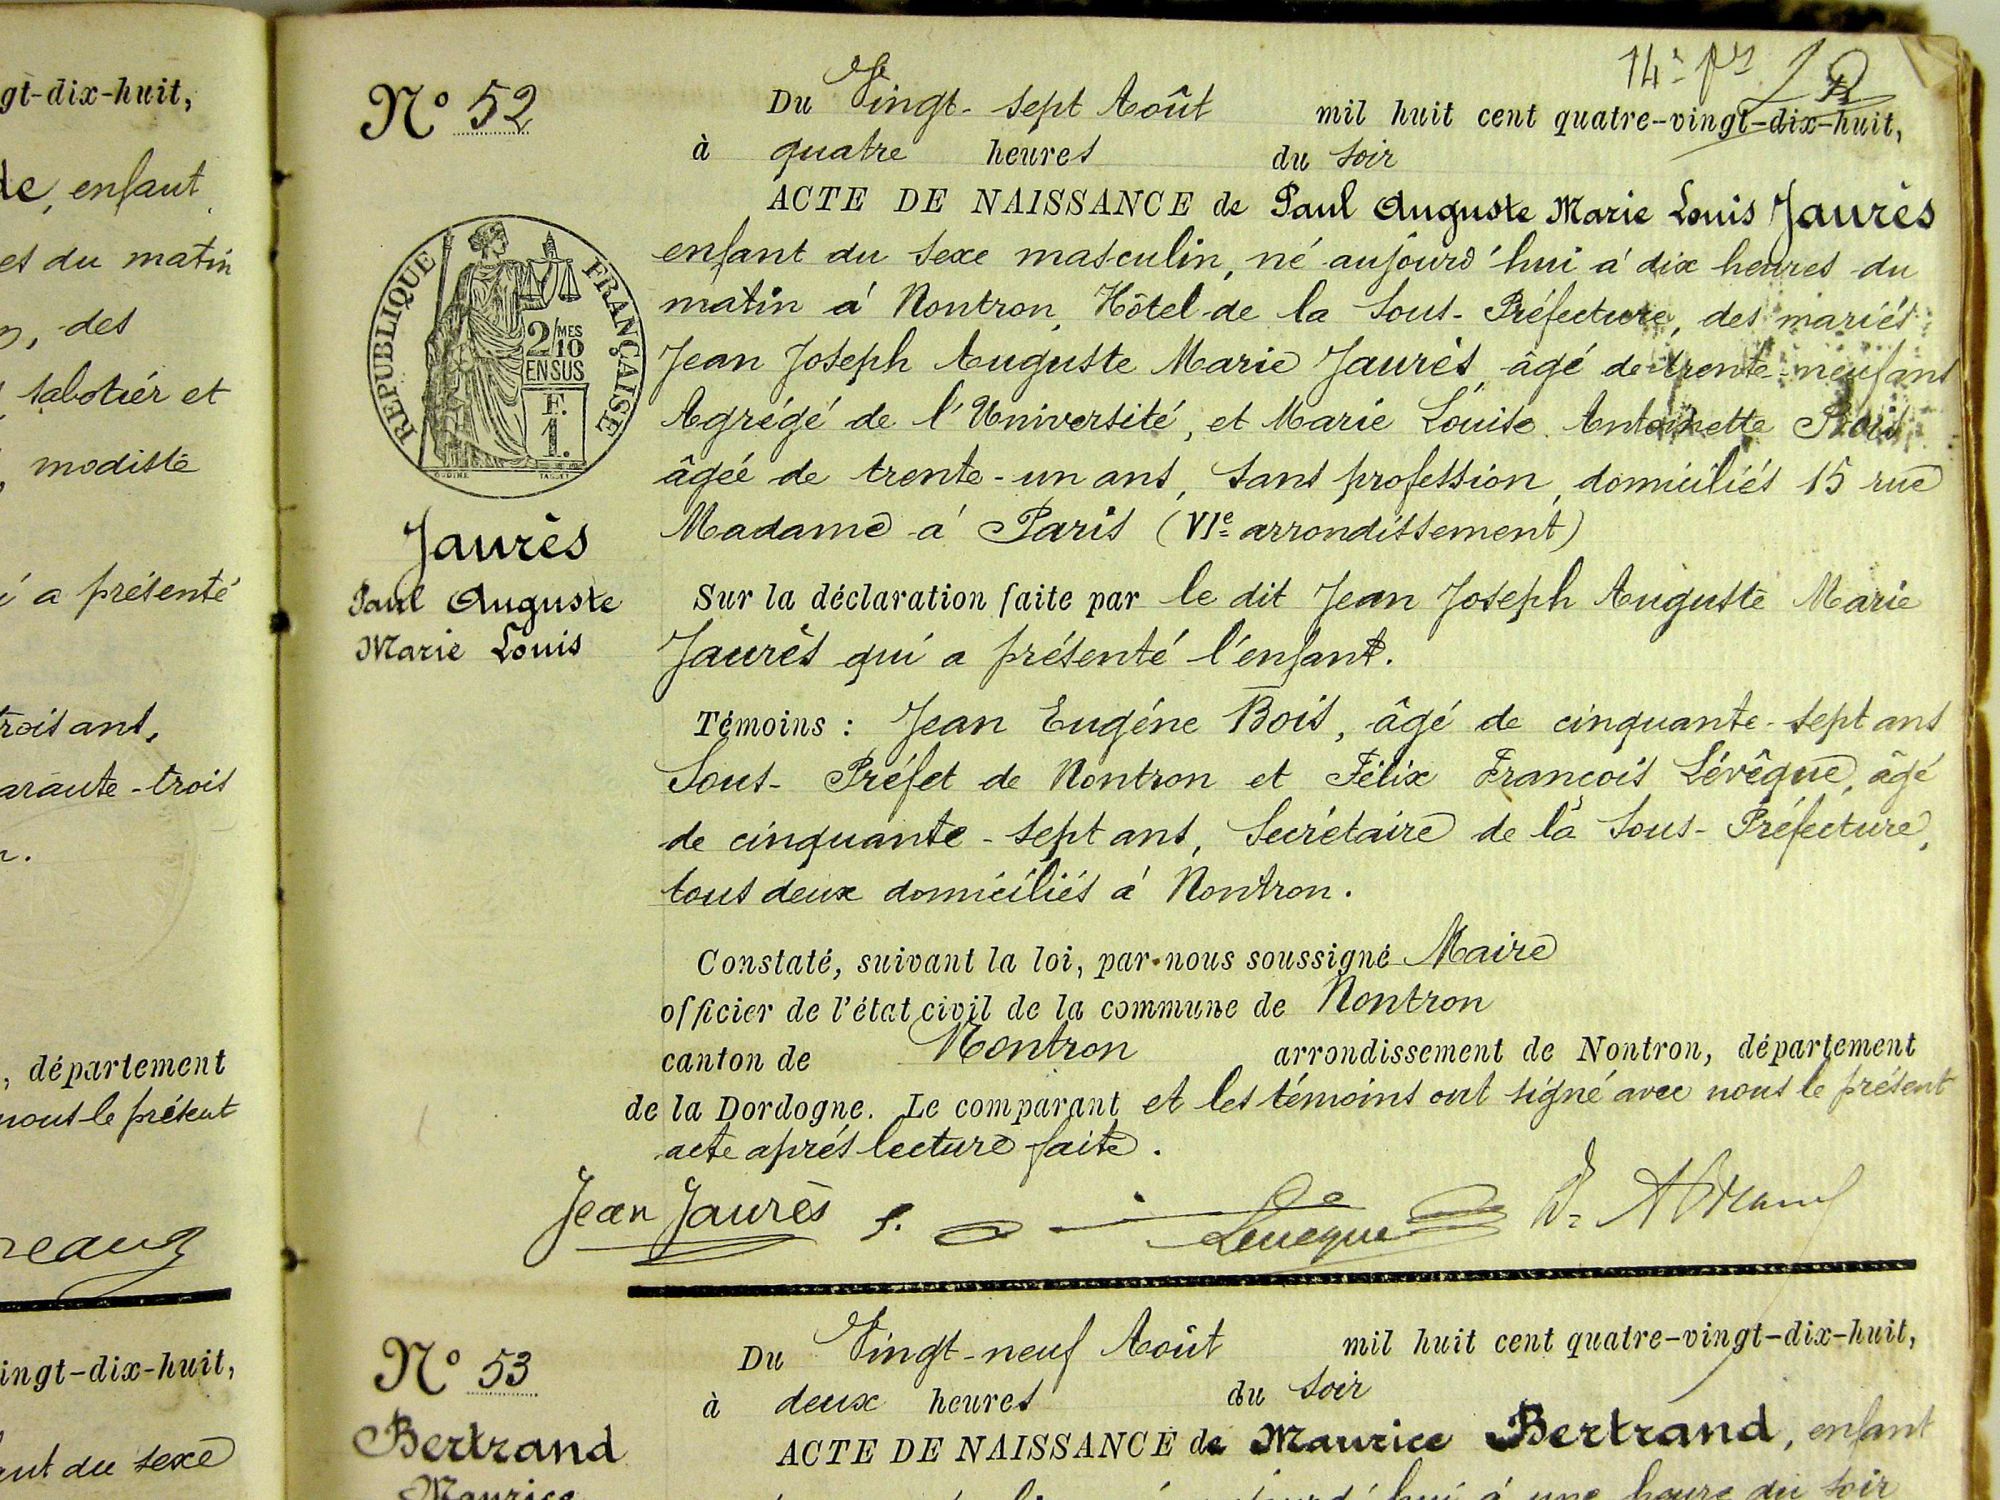 gt-dix-huit,
de, enfant
es du matin
, des
sabotier et
, modiste
i a présenté
trois ans,
arante-trois
, département
nous le présent
ingt-dix-huit,
ant du sexe
14e
N° 52
Du Vingt-sept Août mil huit cent quatre-vingt-dix-huit,
à quatre heures du soir
ACTE DE NAISSANCE de Paul Auguste Marie Louis Jaurès
enfant du sexe masculin, né aujourd'hui à dix heures du
matin à Nontron, Hôtel de la Sous-Préfecture, des mariés
Jean Joseph Auguste Marie Jaurès, âgé de trente-neuf ans
Agrégé de l'Université, et Marie Louise Antoinette Bois
âgée de trente-un ans, sans profession, domiciliés 15 rue
Madame à Paris (VIe arrondissement)
RÉPUBLIQUE FRANÇAISE
2/MES
10
EN SUS
F.
1.
Jaurès
Paul Auguste
Marie Louis
Sur la déclaration faite par le dit Jean Joseph Auguste Marie
Jaurès qui a présenté l'enfant.
Témoins : Jean Eugène Bois, âgé de cinquante-sept ans
Sous-Préfet de Nontron et Félix François Lévêque, âgé
de cinquante-sept ans, Secrétaire de la Sous-Préfecture,
tous deux domiciliés à Nontron.
Constaté, suivant la loi, par nous soussigné Maire
officier de l'état civil de la commune de Nontron
canton de Nontron arrondissement de Nontron, département
de la Dordogne. Le comparant et les témoins ont signé avec nous le présent
acte après lecture faite.
Jean Jaurès Leveque
N° 53
Du Vingt-neuf Août mil huit cent quatre-vingt-dix-huit,
à deux heures du soir
Bertrand
Maurice
ACTE DE NAISSANCE de Maurice Bertrand, enfant
à une heure du soir